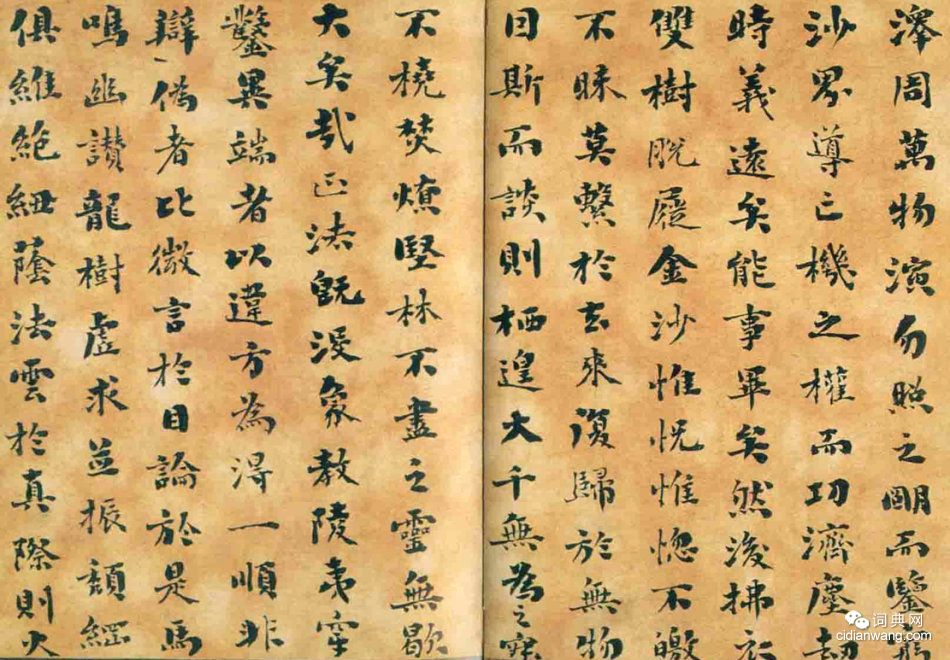 澤周萬物演勿照之明而鑒窮
沙界導亡機之權而功濟塵劫
時義遠矣能事畢矣然後拂衣
雙樹脫屣金沙惟怳惟惚不皦
不昧莫繫於去來復歸於無物
因斯而談則栖遑大千無為之寂
不撓焚燎堅林不盡之靈無歇
大矣哉正法既沒象教陵夷穿
鑿異端者以違方為得一順非
辯偽者比微言於目論於是馬
鳴幽讚龍樹虛求並振頹綱
俱維絕紐蔭法雲於真際則火
词典网
cidianwang.com